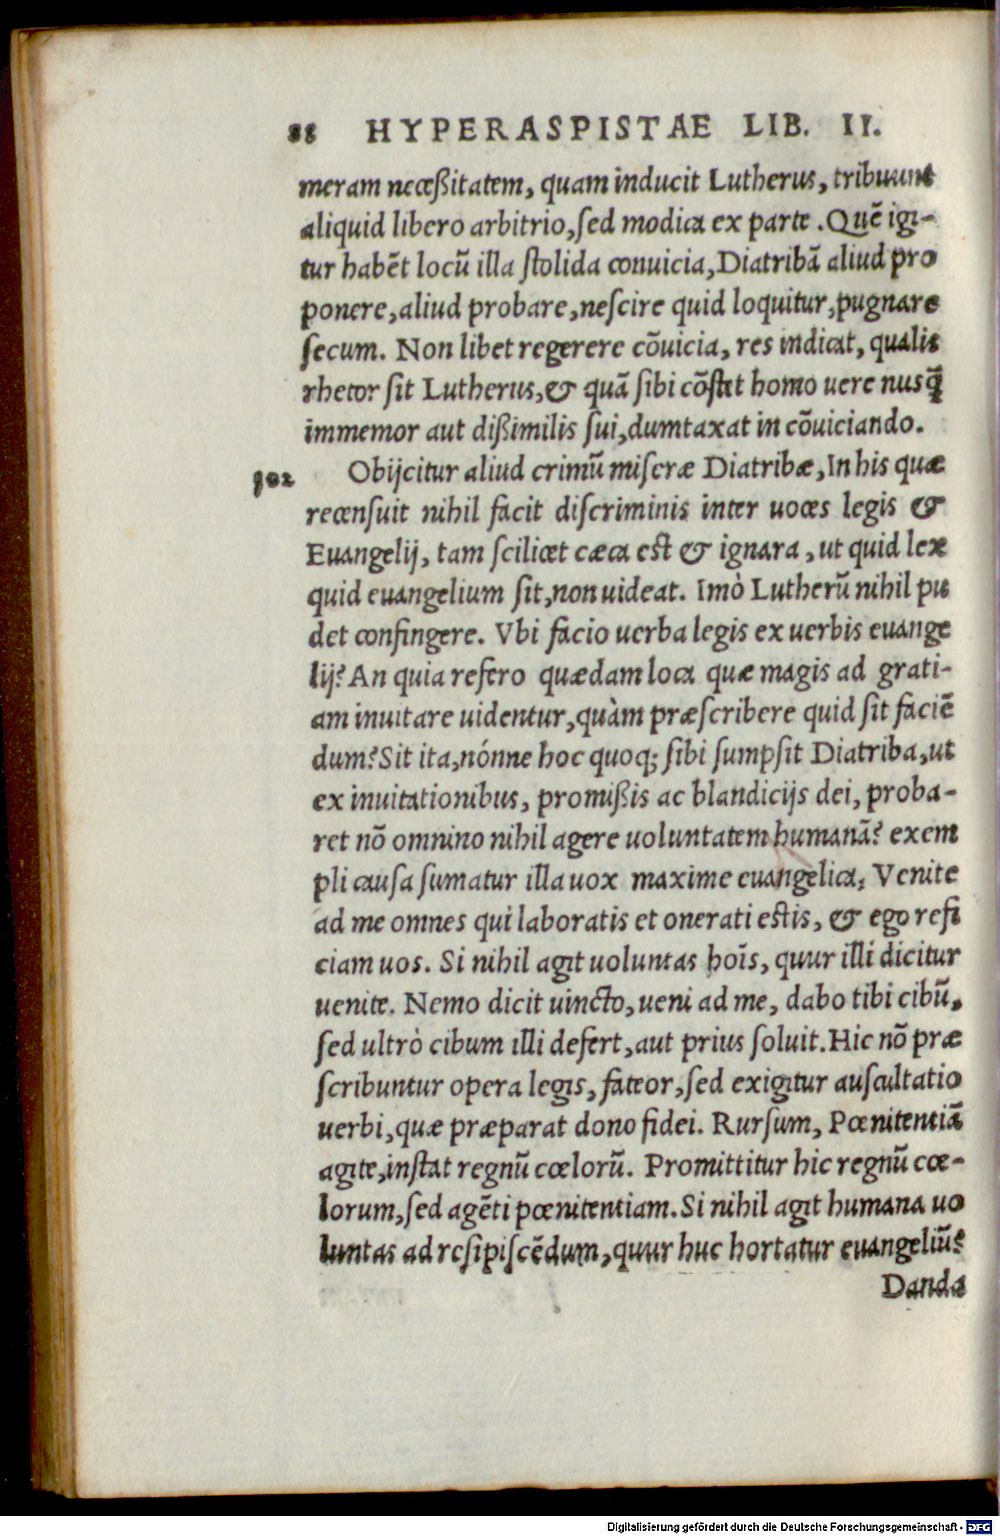 88 HYPERASPISTAE LIB. II.
meram neceßitatem, quam inducit Lutherus, tribuunt
aliquid libero arbitrio, sed modica ex parte . Quē igi-
tur habēt locū illa stolida conuicia, Diatribā aliud pro
ponere, aliud probare, nescire quid loquitur, pugnare
secum. Non libet regerere cōuicia, res indicat, qualis
rhetor sit Lutherus, & quā sibi cōstet homo uere nusq̄
immemor aut dißimilis sui, dumtaxat in cōuiciando.
Obijcitur aliud crimē miseræ Diatribæ, In his quæ
102
recensuit nihil facit discriminis inter uoces legis &
Euangelij, tam scilicet cæca est & ignara, ut quid lex
quid euangelium sit, non uideat. Imò Lutherū nihil pu
det confingere. Vbi facio uerba legis ex uerbis euange
lij? An quia refero quædam loca quæ magis ad grati-
am inuitare uidentur, quàm præscribere quid sit faciē
dum? Sit ita, nónne hoc quoq; sibi sumpsit Diatriba, ut
ex inuitationibus, promißis ac blandicijs dei, proba-
ret nō omnino nihil agere uoluntatem humanā? exem
pli causa sumatur illa uox maxime euangelica, Venite
ad me omnes qui laboratis et onerati estis, & ego refi
ciam uos. Si nihil agit uoluntas hoīs, quur illi dicitur
uenite. Nemo dicit uincto, ueni ad me, dabo tibi cibū,
sed ultrò cibum illi defert, aut prius soluit. Hic nō præ
scribuntur opera legis, fateor, sed exigitur auscultatio
uerbi, quæ præparat dono fidei. Rursum, Pœnitentiā
agite, instat regnū cœlorū. Promittitur hic regnū cœ-
lorum, sed agēti pœnitentiam. Si nihil agit humana uo
luntas ad resipiscēdum, quur huc hortatur euangeliū?
Danda
Digitalisierung gefördert durch die Deutsche Forschungsgemeinschaft - DFG